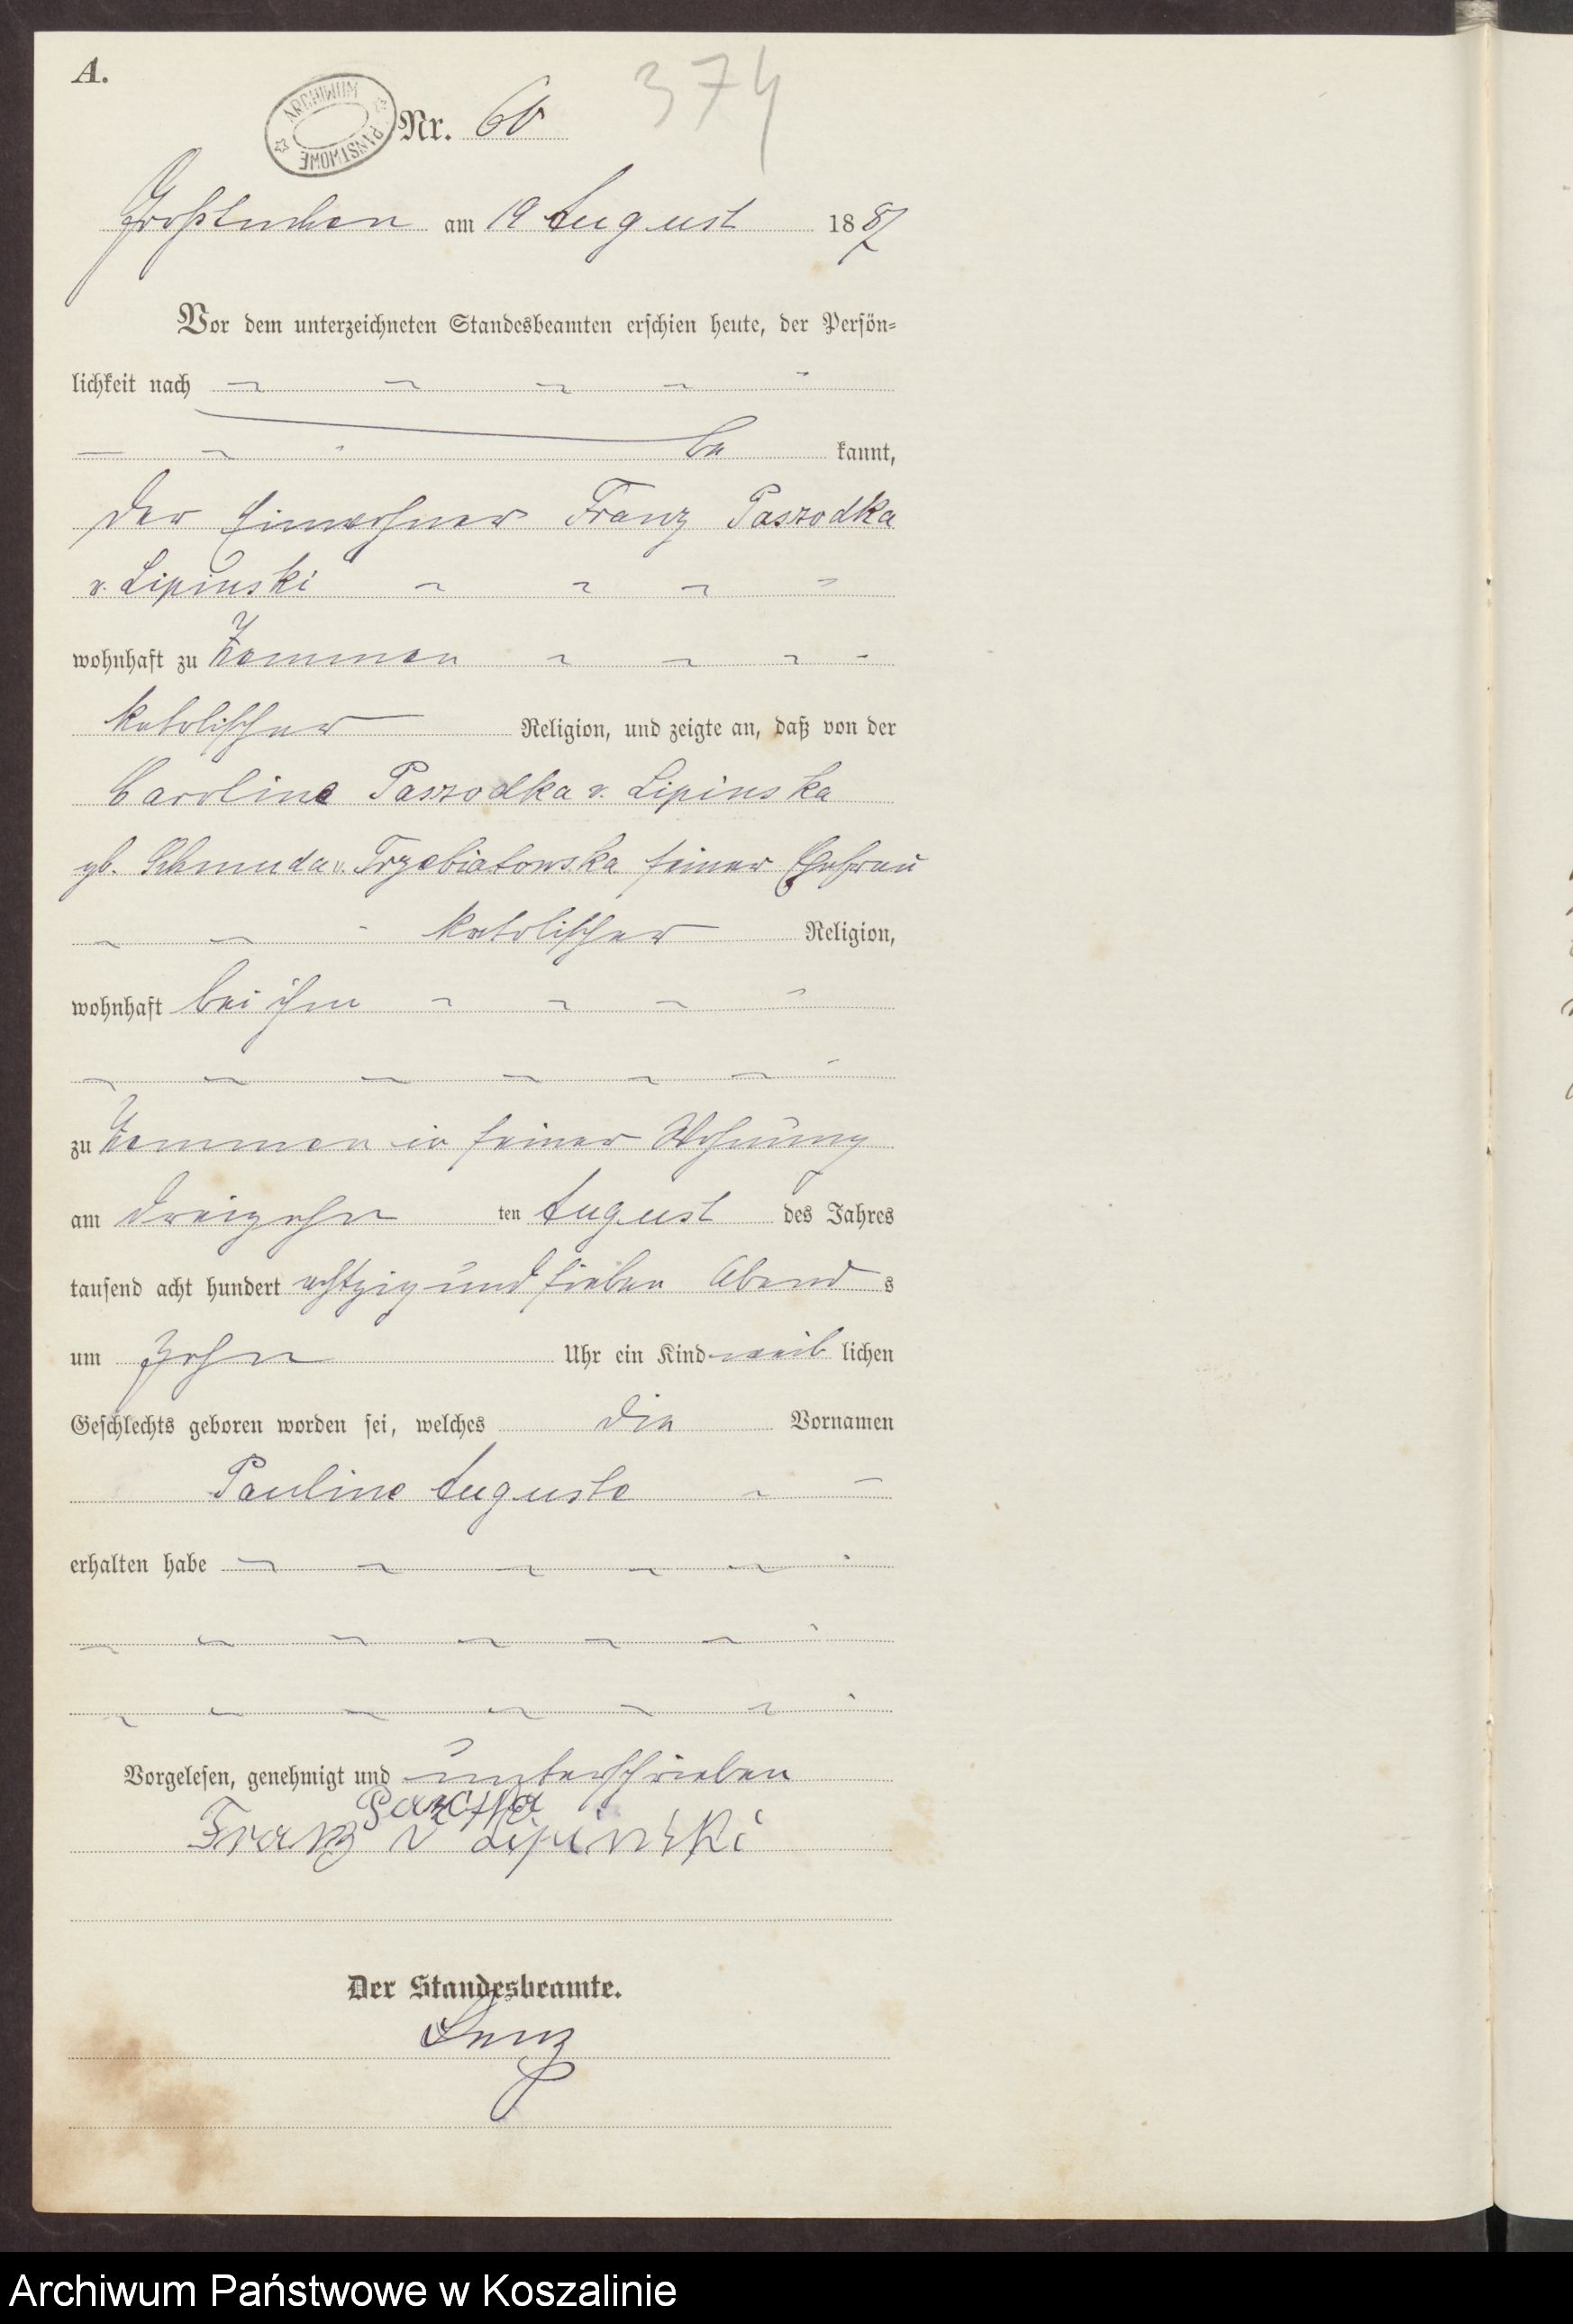 A.
ARCHIWUM PAŃSTWOWE
Nr. 60
374
Großtuchen am 19 August 1887
Vor dem unterzeichneten Standesbeamten erschien heute, der Persön-
lichkeit nach
be kannt,
der Einwohner Franz Paszodka
v. Lipinski
wohnhaft zu Zemmen
katolischer Religion, und zeigte an, daß von der
Caroline Paszodka v. Lipinska
gb. Schmuda v. Trzebiatowska seiner Ehefrau
katolischer Religion,
wohnhaft bei ihm
zu Zemmen in seiner Wohnung
am dreizehn ten August des Jahres
tausend acht hundert achtzig und sieben Abend s
um zehn Uhr ein Kind weib lichen
Geschlechts geboren worden sei, welches die Vornamen
Pauline Auguste
erhalten habe
Vorgelesen, genehmigt und unterschrieben
Franz v Lipinski
Der Standesbeamte.
Lenz
Archiwum Państwowe w Koszalinie